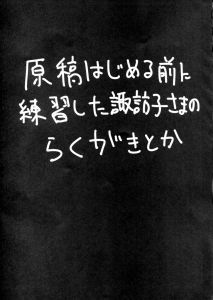 原稿はじめる前に
練習した諏訪子さまの
らくがきとか